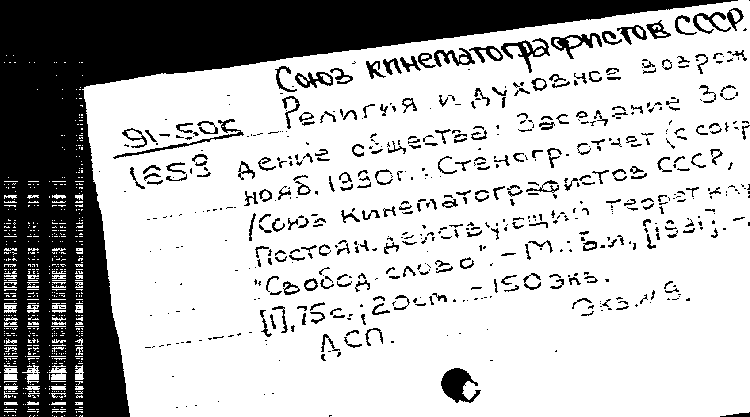 Союз кинематографистов СССР.
91-506 Религия и духовное возрож
1253 дение общества: Заседание 30
нояб. 1990г.: Стеногр. отчет (с сокр
/Союз кинематографистов СССР,
Постоян. действующий теорет клу
"Свобод. слово". - М.: Б.и., [1991]. -
[1], 75 с.; 20 см. - 150 экз.
ДСП. Экз. № 9.